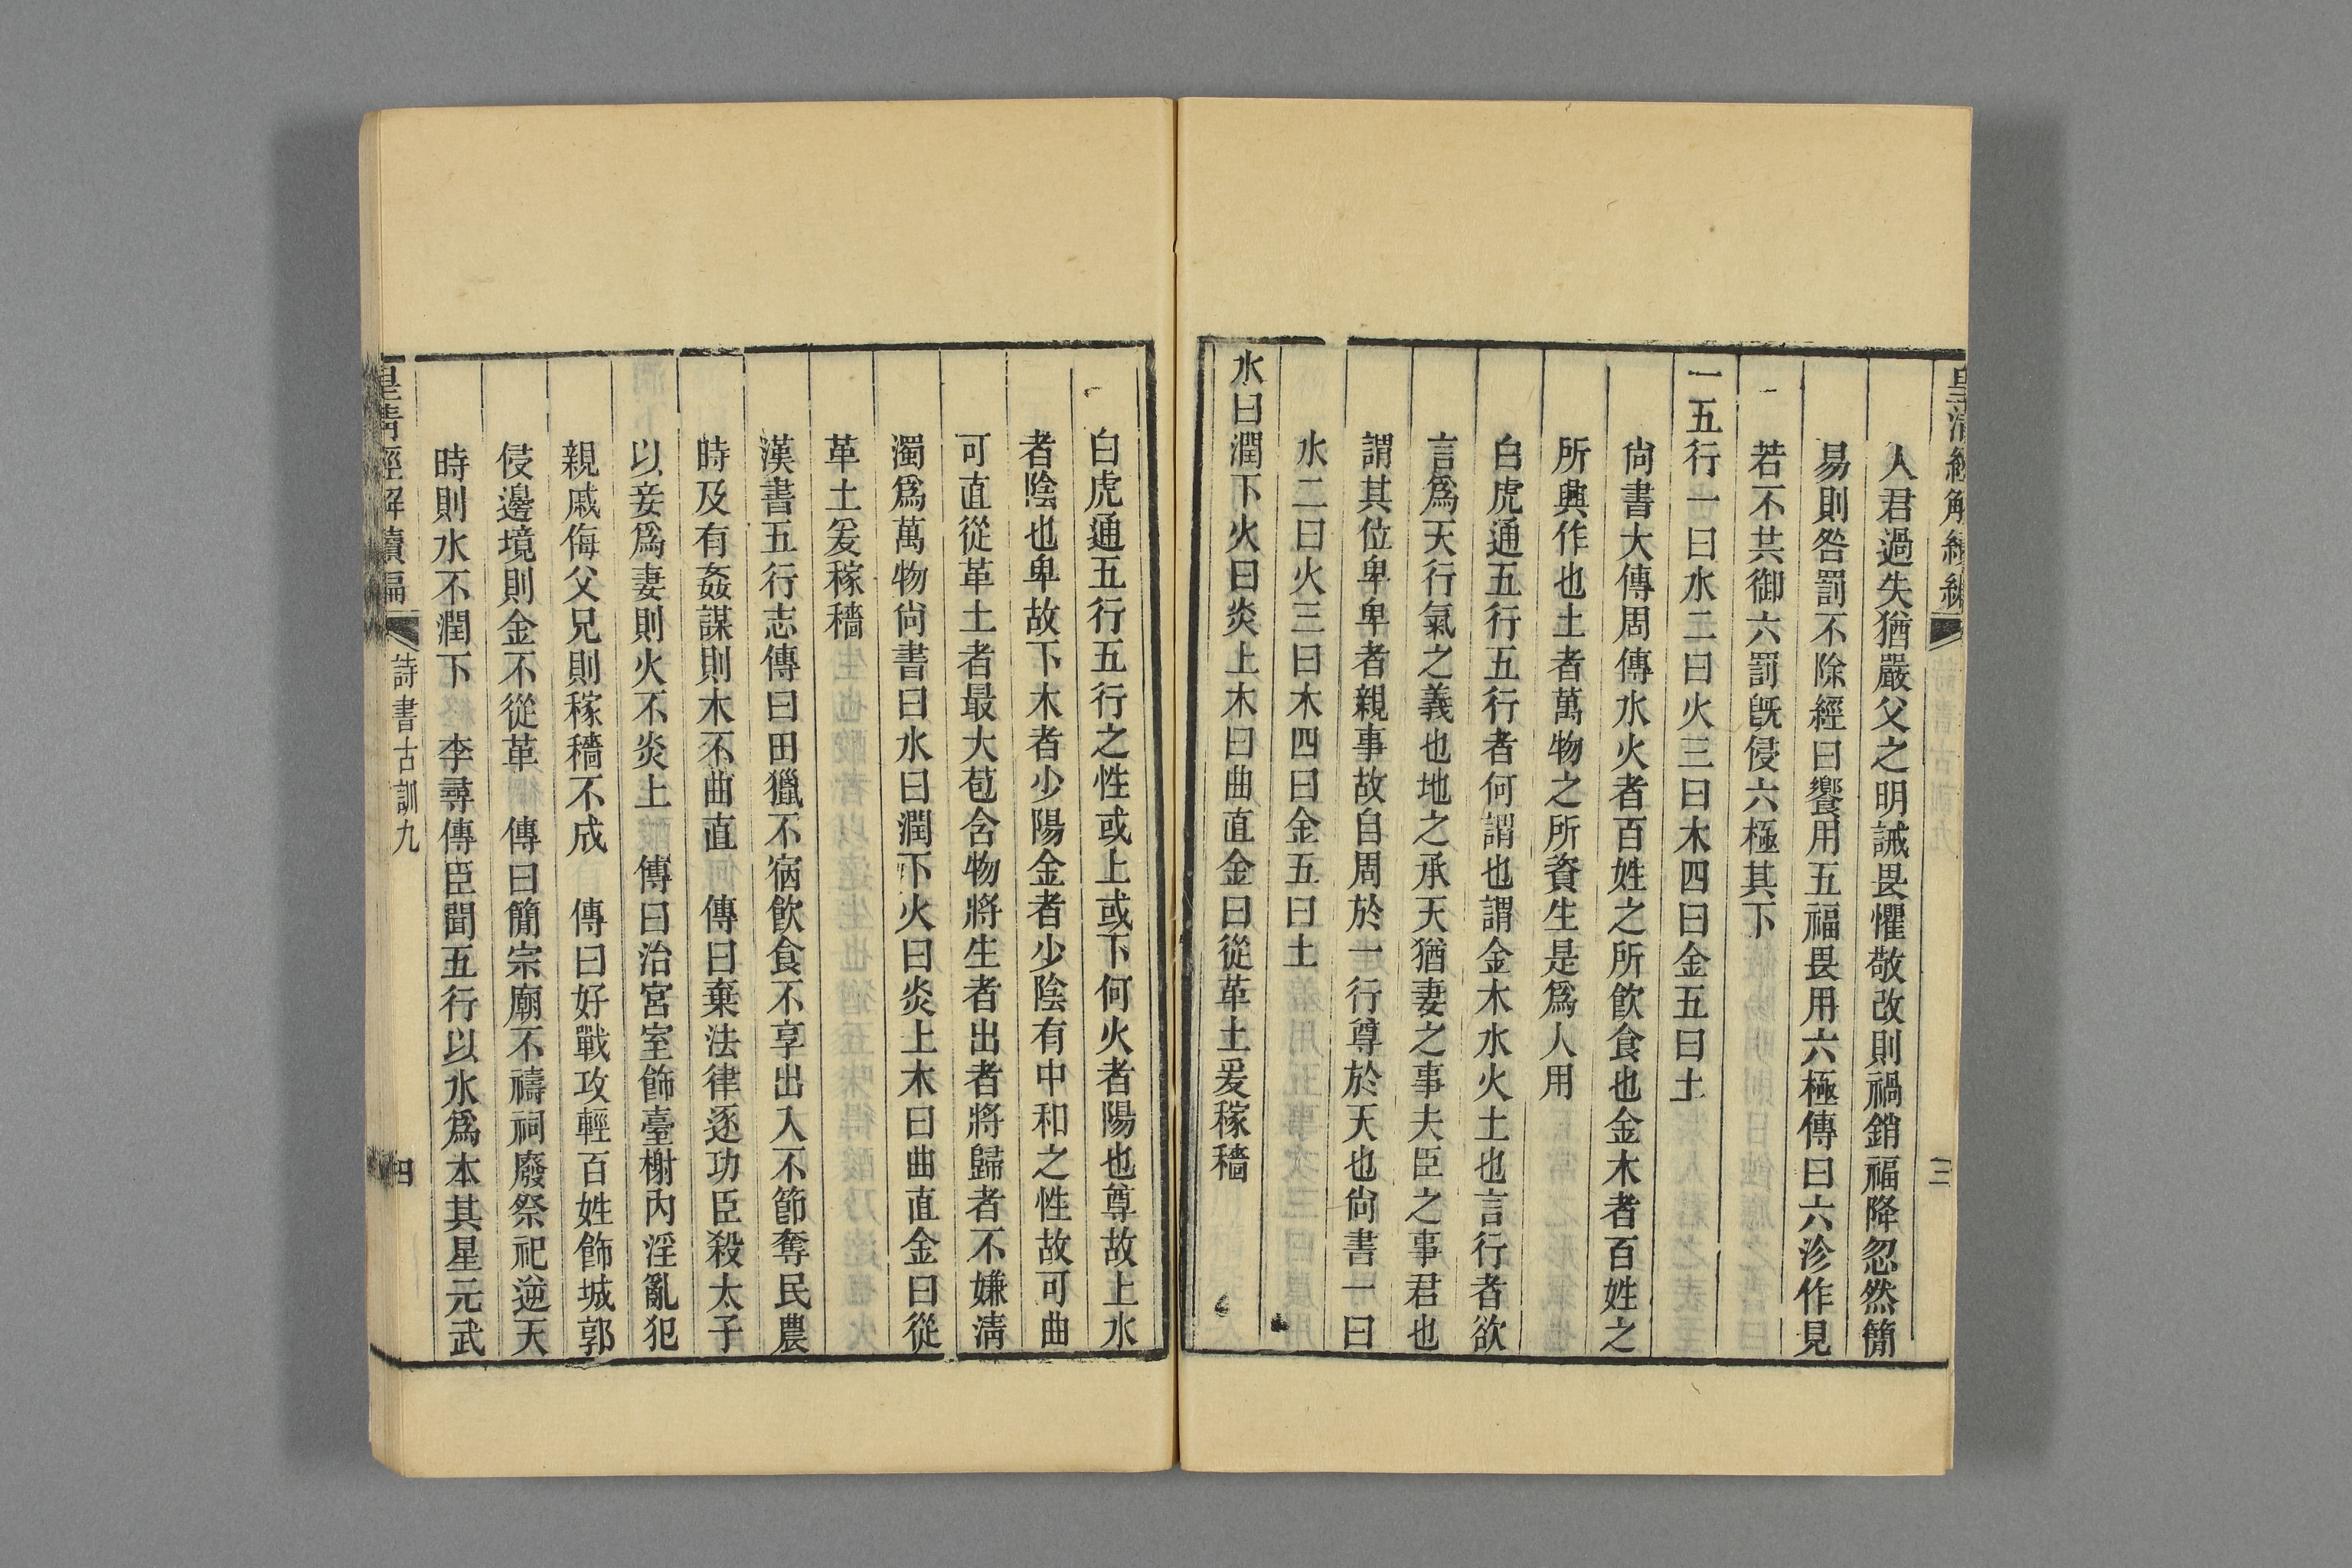 皇清經解續編
三
人君過失猶嚴父之明誡畏懼敬改則禍銷福降忽然簡
易則咎罰不除經曰饗用五福畏用六極傳曰六沴作見
若不共御六罰旣侵六極其下
一五行一曰水二曰火三曰木四曰金五曰土
尙書大傳周傳水火者百姓之所飮食也金木者百姓之
所興作也土者萬物之所資生是爲人用
白虎通五行五行者何謂也謂金木水火土也言行者欲
言爲天行氣之義也地之承天猶妻之事夫臣之事君也
謂其位卑卑者親事故自周於一行尊於天也尙書一曰
水二曰火三曰木四曰金五曰土
水曰潤下火曰炎上木曰曲直金曰從革土爰稼穡
白虎通五行五行之性或上或下何火者陽也尊故上水
者陰也卑故下木者少陽金者少陰有中和之性故可曲
可直從革土者最大苞含物將生者出者將歸者不嫌淸
濁爲萬物尙書曰水曰潤下火曰炎上木曰曲直金曰從
革土爰稼穡
漢書五行志傳曰田獵不宿飮食不享出入不節奪民農
時及有姦謀則木不曲直　傳曰棄法律逐功臣殺太子
以妾爲妻則火不炎上　傳曰治宮室飾臺榭內淫亂犯
親戚侮父兄則稼穡不成　傳曰好戰攻輕百姓飾城郭
侵邊境則金不從革　傳曰簡宗廟不禱祠廢祭祀逆天
時則水不潤下　李尋傳臣聞五行以水爲本其星元武
皇清經解續編
詩書古訓九
四